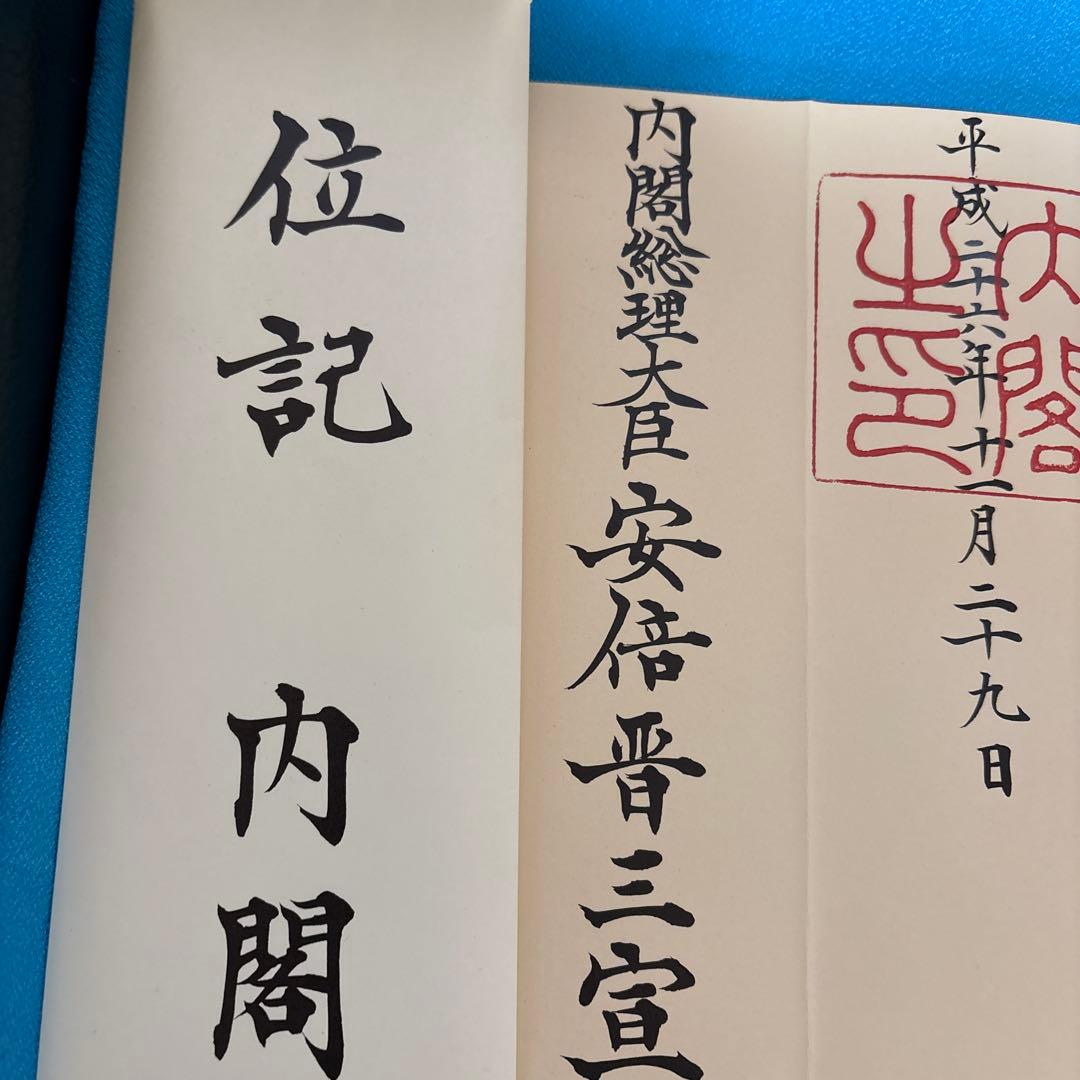 平成二十六年十一月二十九日
内閣之印
内閣総理大臣安倍晋三宣
位記 内閣